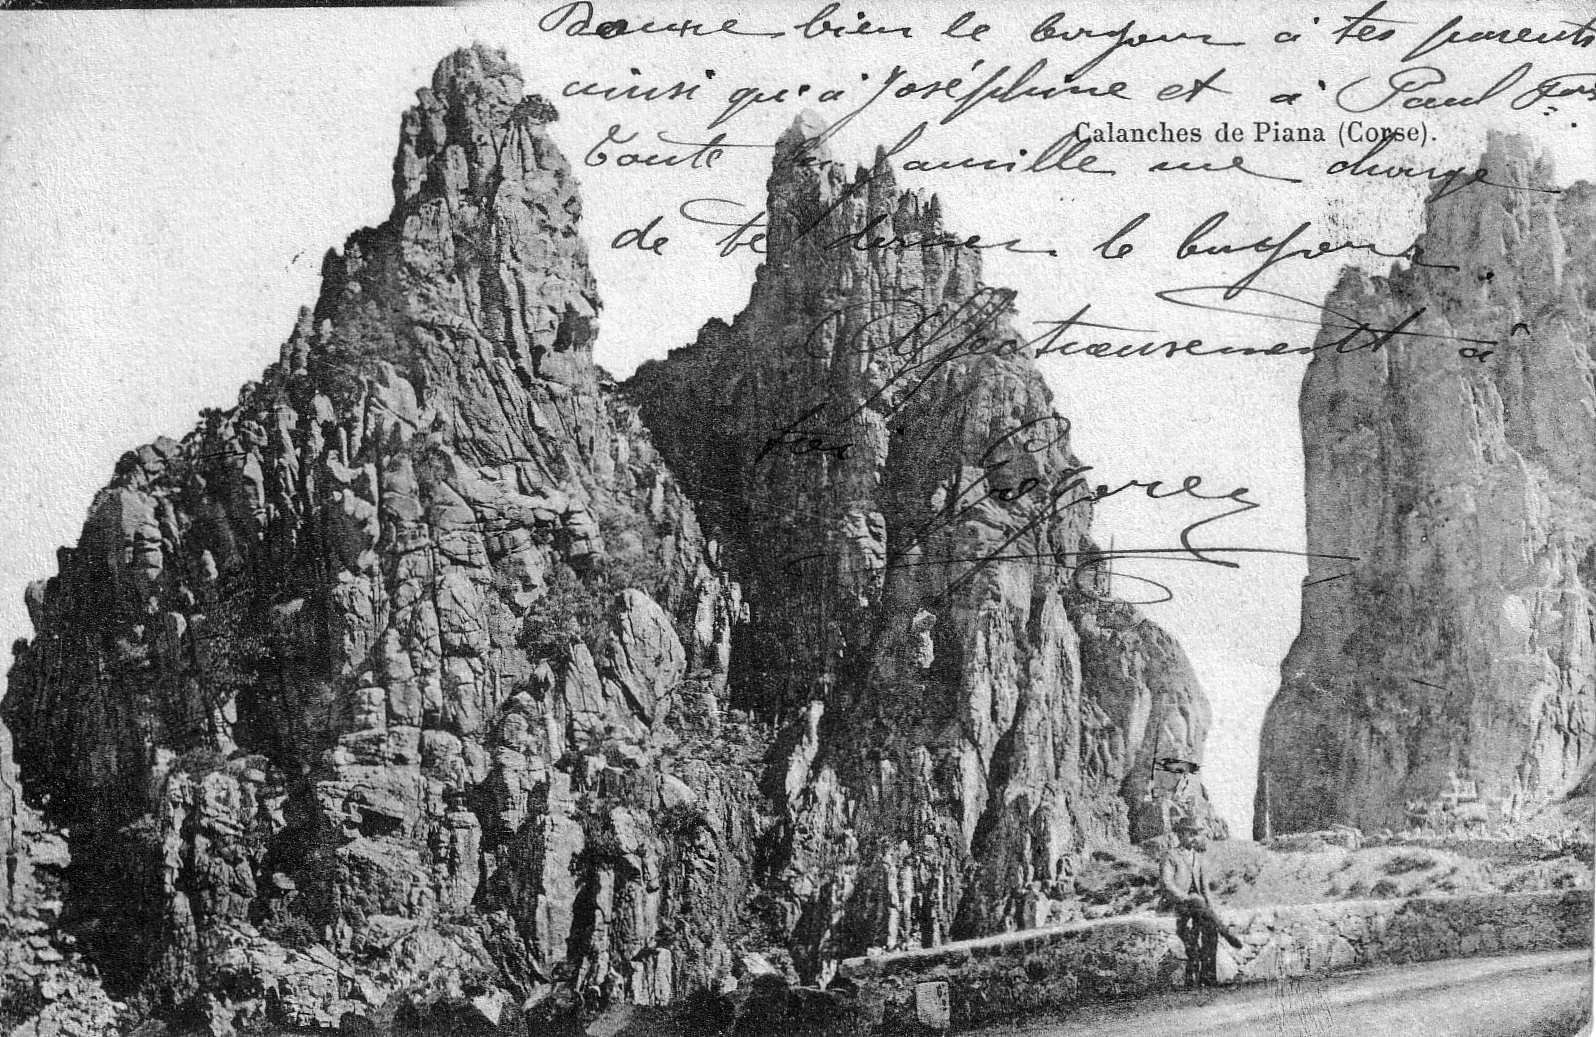 Donne bien le bonjour à tes parents
ainsi qu'à Joséphine et à Paul
Calanches de Piana (Corse).
Toute la famille me charge
de te donner le bonjour.
Affectueusement à
toi